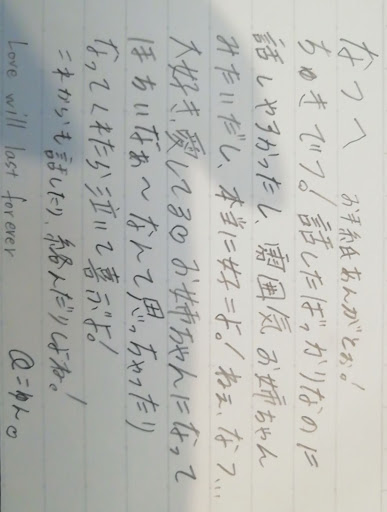 なつへ お手紙あんがとぉ!
ちゅきでつ。! 話したばっかりなのに
話しやすかったし、雰囲気お姉ちゃん
みたいだし、本当に好こよ! ねぇ、なつ...
大好き、愛してる∞お姉ちゃんになって
ほちいなぁ〜なんて思っちゃったり
なってくれたら泣いて喜ぶよ!
これからも話したり、絡んだりしよね。!
Love will last forever